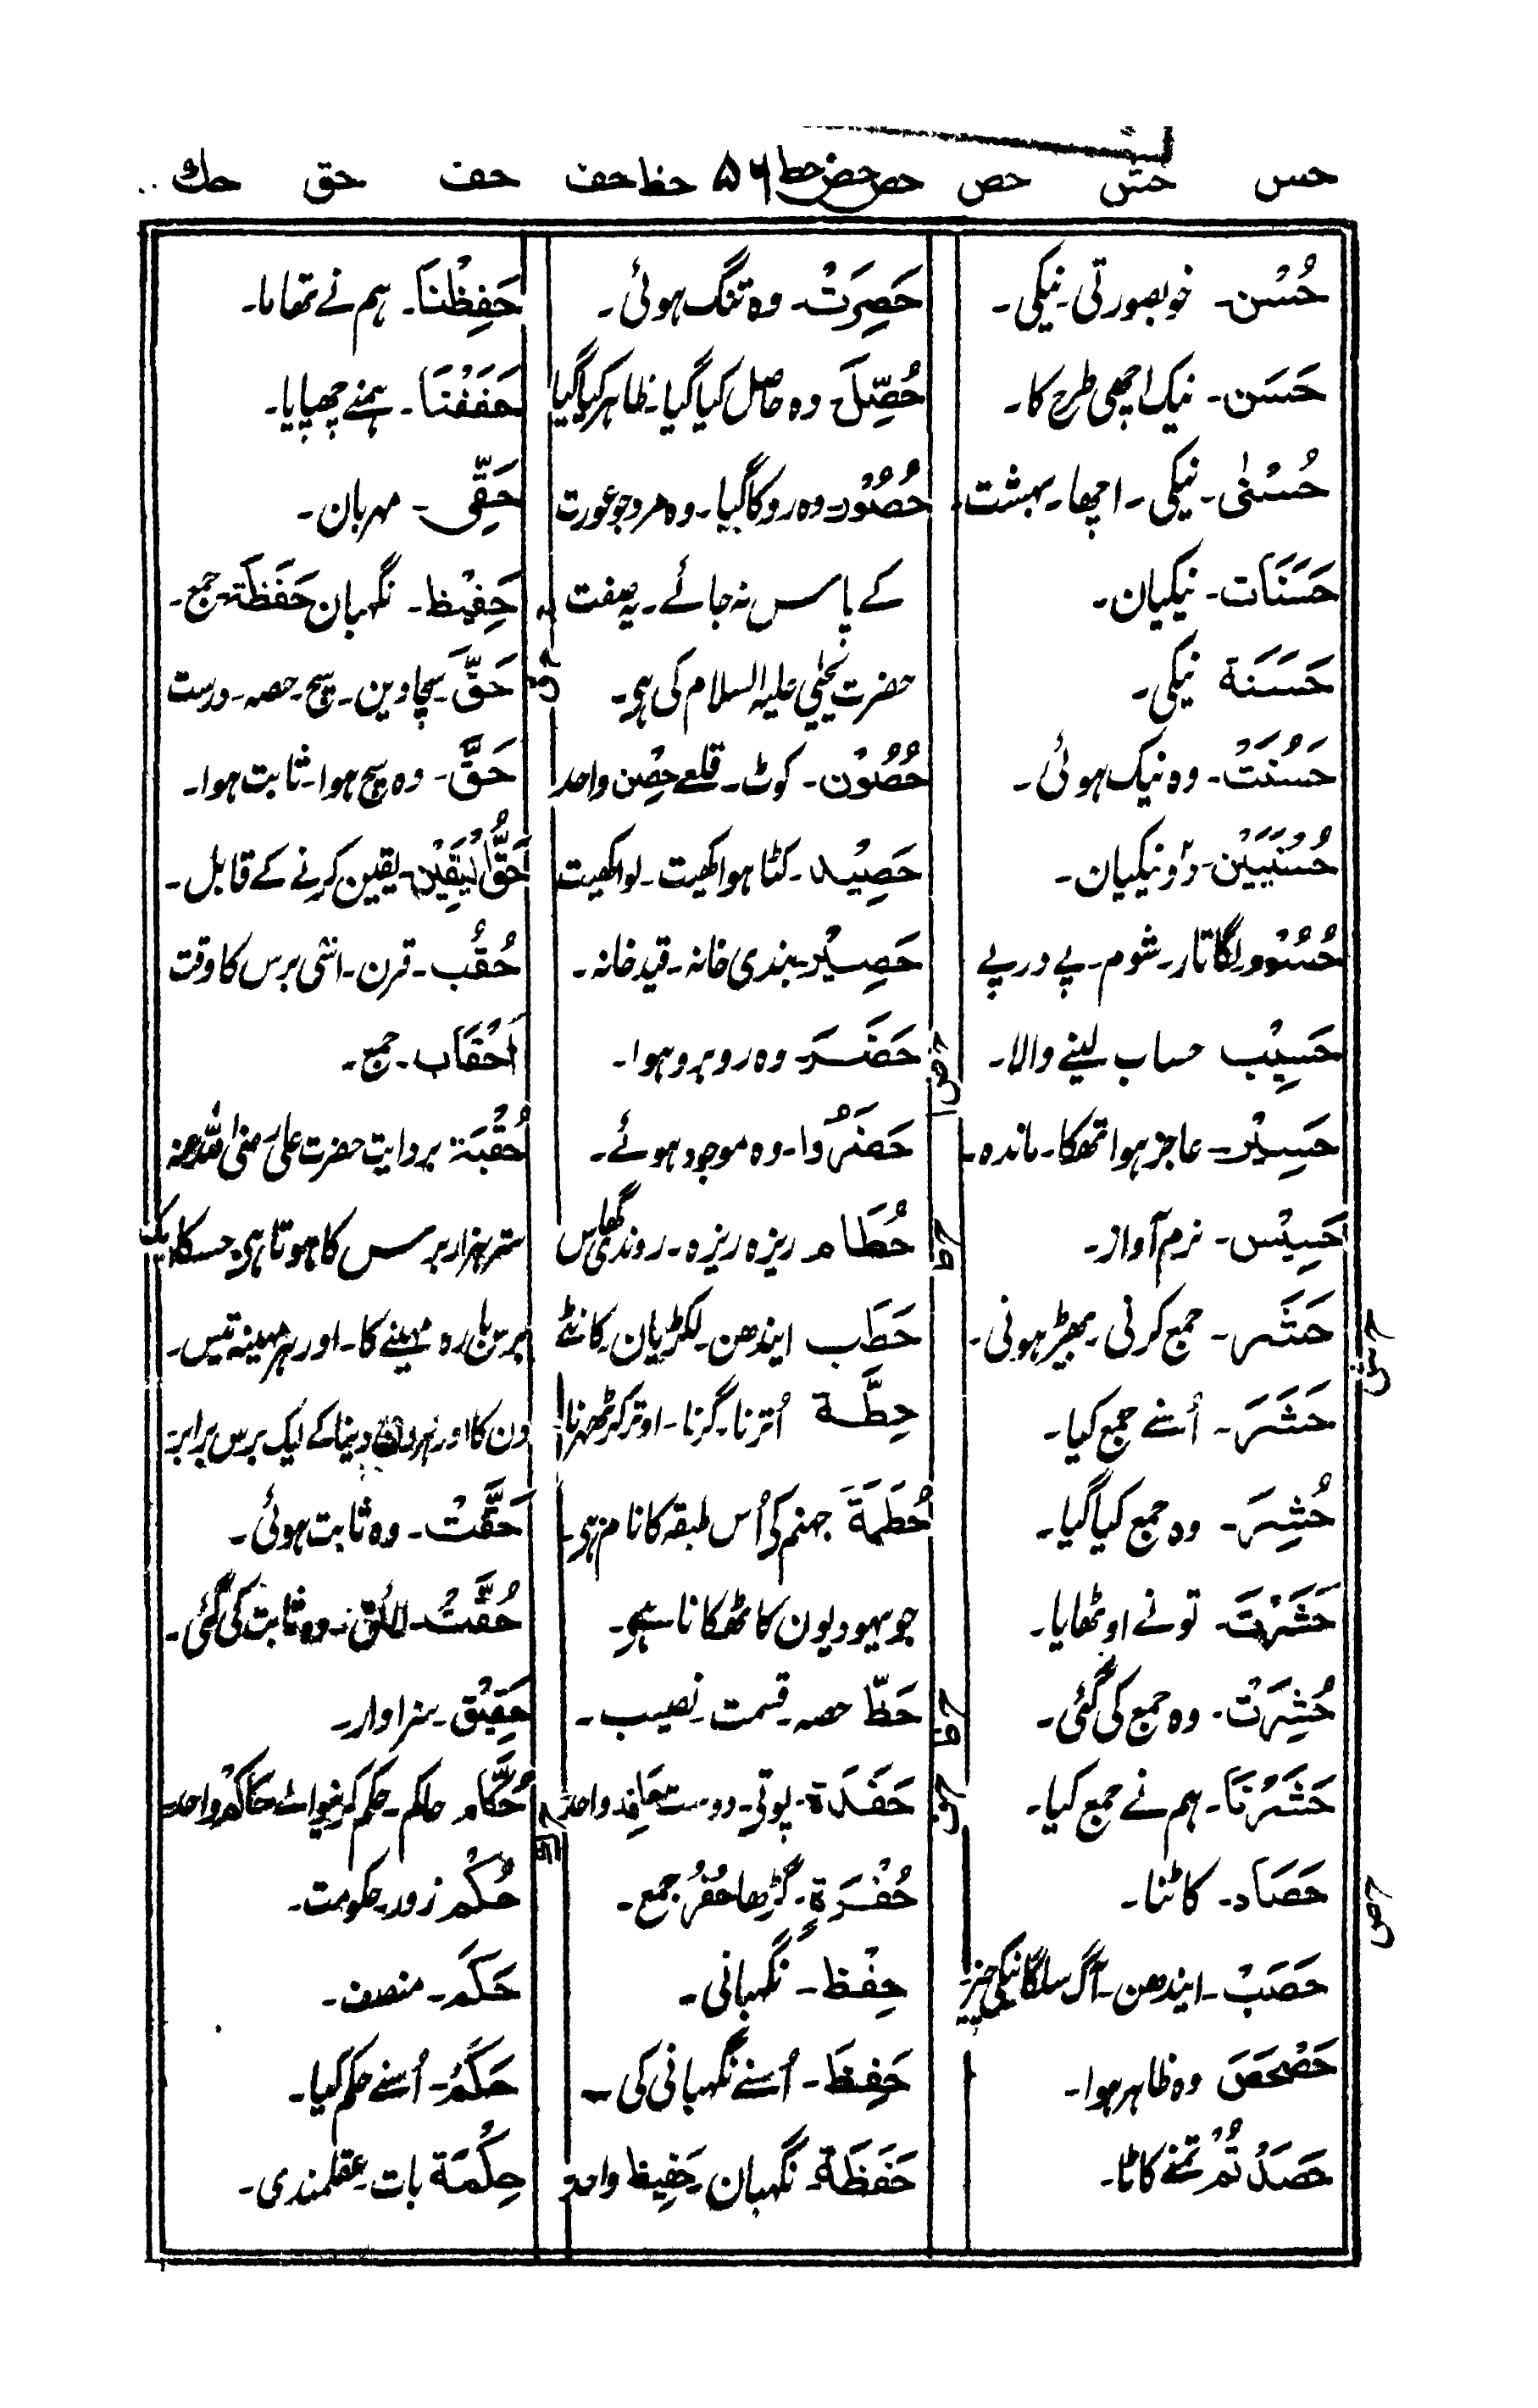 حس حش حص حص حض حط ۵۶ حظ حف حف حق حك
حُسْن۔ خوبصورتی۔ نیکی۔
حَسَن۔ نیک اچھی طرح کا۔
حُسْنٰی۔ نیکی۔ اچھا۔ بہشت۔
حَسَنَات۔ نیکیان۔
حَسَنَة نیکی۔
حَسُنَتْ۔ وہ نیک ہوئی۔
حُسْنَيَيْن۔ دو نیکیان۔
حُسُوْم لگاتار۔ شوم۔ پے در پے
حَسِيْب حساب لینے والا۔
حَسِيْر۔ عاجز ہوا تھکا۔ ماندہ۔
حَسِيْس۔ نرم آواز۔
حش
حَشَر۔ جمع کرنی۔ بھیڑ ہونی۔
حَشَرَ۔ اُسنے جمع کیا۔
حُشِرَ۔ وہ جمع کیا گیا۔
حَشَرْتَ۔ تونے اوٹھایا۔
حُشِرَتْ۔ وہ جمع کی گئی۔
حَشَرْنَا۔ ہم نے جمع کیا۔
حص
حَصَاد۔ کاٹنا۔
حَصَبْ۔ ایندھن۔ آگ سلگانیکی چیز۔
حَصْحَصَ وہ ظاہر ہوا۔
حَصَدْتُّمْ تمنے کاٹا۔
حَصِرَتْ۔ وہ تنگ ہوئی۔
حُصِّلَ۔ وہ حاصل کیا گیا۔ ظاہر کیا گیا
حُصُوْر۔ وہ روکا گیا۔ وہ مرد جو عورت
کے پاس نہ جائے۔ یہ صفت
حضرت یحیٰی علیہ السلام کی ہی۔
حُصُوْن۔ کوٹ۔ قلعے حِصْن واحد
حَصِيْد۔ کٹا ہوا کھیت۔ لوا کھیت
حَصِيْر۔ بندی خانہ۔ قید خانہ۔
حض
حَضَرَ۔ وہ روبرو ہوا۔
حَضَرُوا۔ وہ موجود ہوئے۔
حط
حُطَام ریزہ ریزہ۔ روندی گھاس
حَطَب ایندھن۔ لکڑیان۔ کانٹے
حِطَّة اُترنا۔ گرنا۔ اوتر کر ٹھہرنا
حُطَمَةَ جہنم کی اُس طبقہ کا نام ہی۔
جو یہودیون کا ٹھکانا ہے۔
حظ
حَظّ حصہ۔ قسمت۔ نصیب۔
حف
حَفَدَة۔ پوتی۔ دوست حَافِد واحد
حُفْرَةٍ۔ گڑھا حُفَر جمع۔
حِفْظ۔ نگہبانی۔
حَفِظَ۔ اُسنے نگہبانی کی۔
حَفَظَة۔ نگہبان۔ حَفِيظ واحد
حَفِظْنَا۔ ہم نے تھاما۔
حَفَفْنَا۔ ہمنے چھپایا۔
حَفِّی۔ مہربان۔
حَفِيْظ۔ نگہبان حَفَظَة جمع۔
حق
حَقَّ۔ سچا دین۔ سچ۔ حصہ۔ درست
حَقَّ۔ وہ سچ ہوا۔ ثابت ہوا۔
حَقُّ الْيَقِيْن۔ یقین کرنے کے قابل۔
حُقُب۔ قرن۔ اسّی برس کا وقت
اَحْقَاب۔ جمع۔
حُقْبَة بروایت حضرت علی رضی اللہ عنہ
ستر ہزار برس کا ہوتا ہی۔ جسکا ایک
برس بارہ مہینے کا۔ اور ہر مہینہ تیس۔
دن کا اور ہر دن دینا کے ایک برس برابر۔
حَقَّتْ۔ وہ ثابت ہوئی۔
حُقَّتْ۔ لائق۔ وہ ثابت کی گئی۔
حَقِيْق۔ سزاوار۔
حك
حُكَّام حاکم۔ حکم کرنیوالے حَاكِمْ واحد
حُكْم زور۔ حکومت۔
حَكَم۔ منصف۔
حَكَمَ۔ اُسنے حکم کیا۔
حِكْمَة بات۔ عقلمندی۔